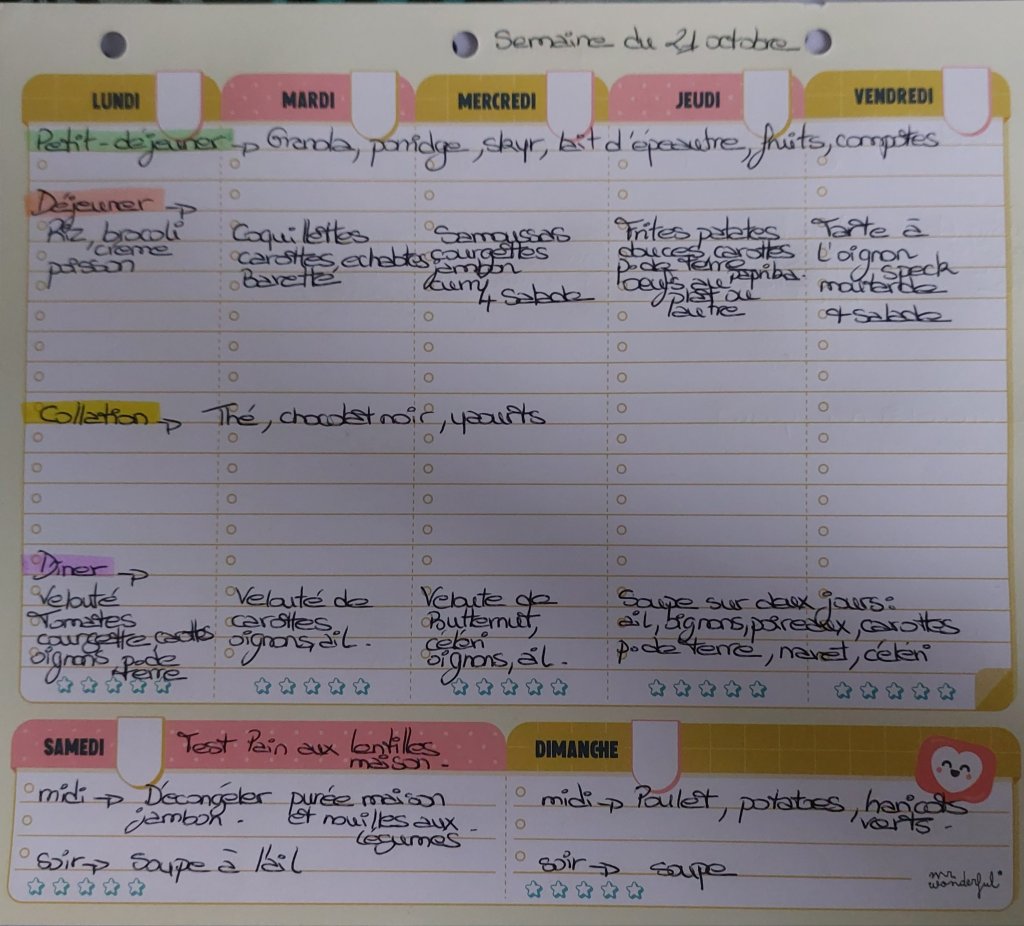 Semaine du 21 octobre
LUNDI MARDI MERCREDI JEUDI VENDREDI
Petit-déjeuner → Granola, porridge, skyr, lait d'épeautre, fruits, compotes
Déjeuner →
Riz, brocoli
crème
poisson
Coquillettes
carottes, echalotes
Barette
Samoussas
courgettes
jambon
curry
+ Salade
Frites patates
douces, carottes
p.de terre
oeufs au paprika
plat ou
l'autre
Tarte à
l'oignon
speck
moutarde
+ Salade
Collation → Thé, chocolat noir, yaourts
Dîner →
Velouté
Tomates
courgette, carottes
oignons, p.de
terre
Velouté de
carottes,
oignons, ail.
Veloute de
Butternut,
céleri
oignons, ail.
Soupe sur deux jours:
ail, oignons, poireaux, carottes
p.de terre, navet, céleri
SAMEDI Test Pain aux lentilles
maison.
midi → Décongeler purée maison
jambon. et nouilles aux
légumes
soir → Soupe à l'ail
DIMANCHE
midi → Poulet, potatoes, haricots
verts.
soir → soupe
mr
wonderful*